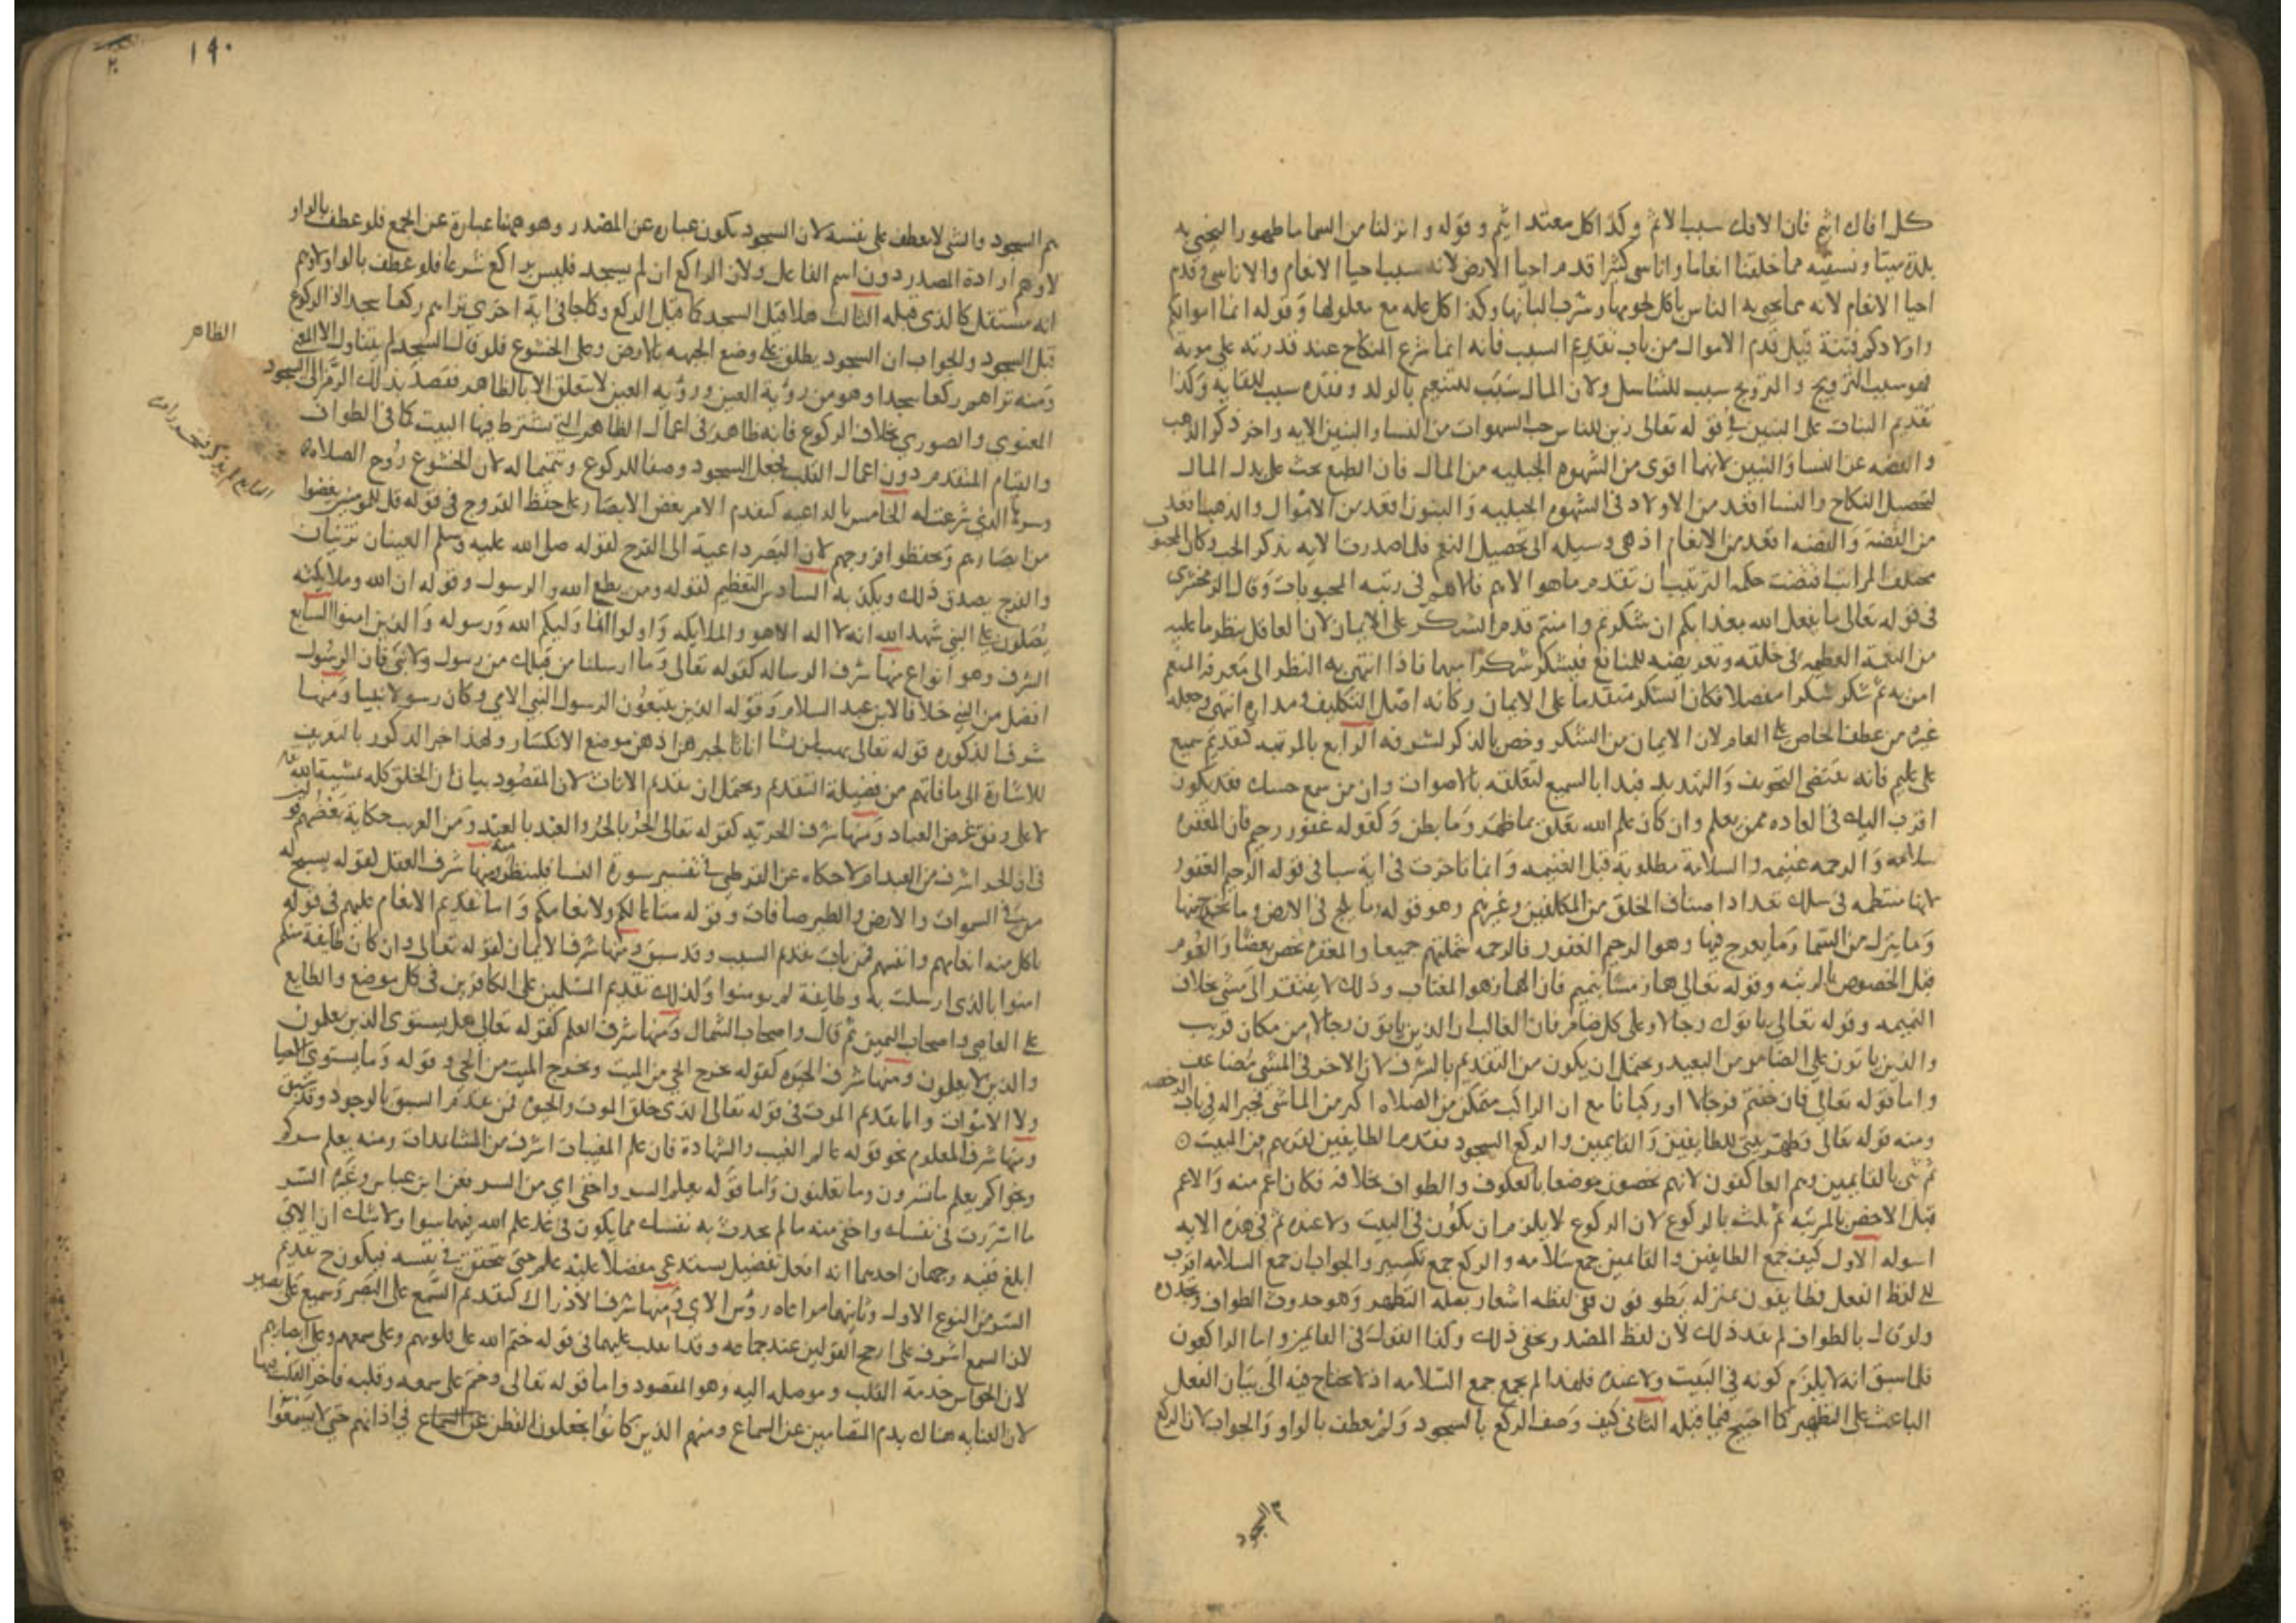 كل افاك اثيم فان الافك سبب الاثم وكذا كل معتد اثيم وقوله وانزلنا من السما ما طهورا لنحيي به
بلدة ميتا ونسقيه مما خلقنا انعاما واناسي كثيرا قدم احيا الارض لانه سبب احيا الانعام والاناسي وقدم
احيا الانعام لانه مما يحيى به الناس باكل لحومها وشرب البانها وكذا كل علة مع معلولها وقوله انما اموالكم
واولادكم فتنة قيل قدم الاموال من باب تقديم السبب فانه انما شرع النكاح عند قدرته على مونه
فهو سبب التزويج والتزويج سبب للتناسل ولان المال سبب للتنعيم بالولد وفقده سبب لشقايه وكذا
تقديم البنات على البنين في قوله تعالى زين للناس حب الشهوات من النسا والبنين الايه واخر ذكر الذهب
والفضه عن النسا والبنين لانهما اقوى من الشهوه الجبليه من المال فان الطبع يحث على بذل المال
لتحصيل النكاح والنسا اقعد من الاولاد في الشهوه الجبليه والبنون اقعد من الاموال والذهب اقعد
من الفضة والفضه اقعد من الانعام اذ هي وسيله الى تحصيل النعم فلما صدرت الايه بذكر الحب وكان المحبوب
مختلف المراتب اقتضت حكمه الترتيب ان تقدم ما هو الاهم فالاهم في رتبه المحبوبات وقال الزمخشري
في قوله تعالى ما يفعل الله بعذابكم ان شكرتم وامنتم قدم الشكر على الايمان لان العاقل ينظر ما عليه
من النعمة العظيمه في خلقه وتعريضه للمنافع فيشكر شكرا مبهما فاذا انتهى به النظر الى معرفة المنعم
امن به ثم شكر شكرا مفصلا فكان الشكر متقدما على الايمان وكانه اصل التكليف ومداره انتهى وجعله
غيره من عطف الخاص على العام لان الايمان من الشكر وخص بالذكر لشرفه الرابع بالمرتبه كتقديم سميع
على عليم فانه يقتضى التخويف والتهديد فبدا بالسميع لتعلقه بالاصوات وان من سمع حسك فقد يكون
اقرب اليك في العاده ممن يعلم وان كان علم الله تعلق بما ظهر وما بطن وكقوله غفور رحيم فان المغفره
سلامه والرحمه غنيمه والسلامة مطلوبة قبل الغنيمه وانما تاخرت في اية سبا في قوله الرحيم الغفور
لانها منتظمه في سلك تعداد اصناف الخلق من المكلفين وغيرهم وهو قوله ما يلج في الارض وما يخرج منها
وما ينزل من السما وما يعرج فيها وهو الرحيم الغفور فالرحمه شملتهم جميعا والمغفره تخص بعضا والعموم
قبل الخصوص بالرتبه وقوله تعالى هماز مشا بنميم فان الهماز هو المغتاب وذلك لا يفتقر الى مشي بخلاف
النميمه وقوله تعالى ياتوك رجالا وعلى كل ضامر فان الغالب ان الذين ياتون رجالا من مكان قريب
والذين ياتون على الضامر من البعيد ويحتمل ان يكون من التقديم بالشرف لان الاجر في المشي مضاعف
واما قوله تعالى فان خفتم فرجالا او ركبانا مع ان الراكب متمكن من الصلاه اكثر من الماشي فجبرا له في باب الرخصه
ومنه قوله تعالى وطهر بيتي للطايفين والقايمين والركع السجود فقدم الطايفين لقربهم من البيت
ثم ثنى بالقايمين وهم العاكفون لانهم يخصون موضعا بالعكوف والطواف بخلافه فكان اعم منه والاعم
قبل الاخص بالمرتبه ثم ثلث بالركوع لان الركوع لا يلزم ان يكون في البيت ولا عنده ثم في هذه الايه
اسوله الاول كيف جمع الطايفين والقايمين جمع سلامه والركع جمع تكسير والجواب ان جمع السلامه اقرب
الى لفظ الفعل فطايفون بمنزله يطوفون ففي لفظه اشعار بعله التطهير وهو حدوث الطواف وتجدده
ولو قال بالطواف لم يفد ذلك لان لفظ المصدر يخفى ذلك وكذا القول في القايمين واما الراكعون
فلما سبق انه لا يلزم كونه في البيت ولا عنده فلهذا لم يجمع جمع السلامه اذ لا يحتاج فيه الى بيان الفعل
الباعث على التطهير كما احتيج فيما قبله الثاني كيف وصف الركع بالسجود ولم يعطف بالواو والجواب لان الركع
هم السجود
١٩٠
هم السجود والشي لا يعطف على نفسه لان السجود يكون عباره عن المصدر وهو ههنا عبارة عن الجمع فلو عطف بالواو
لاوهم ارادة المصدر دون اسم الفاعل ولان الراكع ان لم يسجد فليس براكع شرعا فلو عطف بالواو لاوهم
انه مستقل كالذي قبله الثالث هلا قيل السجد كما قيل الركع وكما جا في اية اخرى تراهم ركعا سجدا اذ الركوع
قبل السجود والجواب ان السجود يطلق على وضع الجبهه بالارض وعلى الخشوع فلو قال السجد لم يتناول الا المعنى
الظاهر
ومنه تراهم ركعا سجدا وهو من رؤية العين ورؤيه العين لا تتعلق الا بالظاهر فقصد بذلك الرمز الى السجود
المعنوى والصوري بخلاف الركوع فانه ظاهر في اعمال الظاهر التي تشترط فيها البيت كما في الطواف
والقيام المتقدم دون اعمال القلب فجعل السجود وصفا للركوع وتتميما له لان الخشوع روح الصلاه
وسرها الذي شرعت له الخامس بالداعيه كتقدم الامر بغض الابصار على حفظ الفروج في قوله قل للمومنين يغضوا
من ابصارهم ويحفظوا فروجهم لان البصر داعية الى الفرج لقوله صلى الله عليه وسلم العينان تزنيان
والفرج يصدق ذلك ويكذبه السادس التعظيم لقوله ومن يطع الله والرسول وقوله ان الله وملايكته
يصلون على النبي شهد الله انه لا اله الا هو والملايكه واولوا العلم انما وليكم الله ورسوله والذين امنوا السابع
الشرف وهو انواع منها شرف الرساله كقوله تعالى وما ارسلنا من قبلك من رسول ولا نبي فان الرسول
افضل من النبي خلافا لابن عبد السلام وقوله الذين يتبعون الرسول النبي الامي وكان رسولا نبيا ومنها
شرف الذكوره قوله تعالى يهب لمن يشا اناثا لجبرهن اذ هن موضع الانكسار ولهذا جبر الذكور بالتعريف
للاشارة الى ما فاتهم من فضيلة التقدم ويحتمل ان تقديم الاناث لان المقصود بيان ان الخلق كله بمشيه الله
لا على وفق غرض العباد ومنها شرف الحريه كقوله تعالى الحر بالحر والعبد بالعبد ومن الغريب حكاية بعضهم قولين
في ان الحر اشرف من العبد ام لا حكاه عن القرطبي في تفسير سورة النسا فلينظر منه ومنها شرف العقل لقوله يسبح له
من في السموات والارض والطير صافات وقوله متاعا لكم ولانعامكم واما تقديم الانعام عليهم في قوله
تاكل منه انعامهم وانفسهم فمن باب تقديم السبب وقد سبق ومنها شرف الايمان لقوله تعالى وان كان طايفة منكم
امنوا بالذي ارسلت به وطايفة لم يومنوا وكذلك تقديم المسلمين على الكافرين في كل موضع والطايع
على العاصي واصحاب اليمين ثم قال واصحاب الشمال ومنها شرف العلم كقوله تعالى هل يستوى الذين يعلمون
والذين لا يعلمون ومنها شرف الحيوه كقوله يخرج الحي من الميت ويخرج الميت من الحي وقوله وما يستوى الاحيا
ولا الاموات واما تقديم الموت في قوله تعالى الذي خلق الموت والحيوة فمن تقدم السبق بالوجود وقد سبق
ومنها شرف المعلوم نحو قوله عالم الغيب والشهادة فان علم المغيبات اشرف من المشاهدات ومنه يعلم سركم
وجهركم يعلم ما تسرون وما تعلنون واما قوله يعلم السر واخفى اي من السر فعن ابن عباس وغيره السر
ما اسررت في نفسك واخفى منه ما لم تحدث به نفسك مما يكون في غد علم الله فيهما سوا ولا شك ان الاتي
ابلغ ففيه وجهان احدهما انه افعل تفضيل يستدعي مفضلا عليه علم حتى يتحقق في نفسه فيكون ح تقديم
السر من النوع الاول وثانيهما مراعاه روس الاي ومنها شرف الادراك كتقديم السمع على البصر وسميع على بصير
لان السمع اشرف على ارجح القولين عند جماعه وقدم القلب عليهما في قوله ختم الله على قلوبهم وعلى سمعهم وعلى ابصارهم
لان الحواس خدمة القلب وموصله اليه وهو المقصود واما قوله تعالى وختم على سمعه وقلبه فاخر القلب فيها
لان العنايه هناك بذم المتصامين عن السماع ومنهم الذين كانوا يجعلون القطن في اذانهم حتى لا يسمعوا